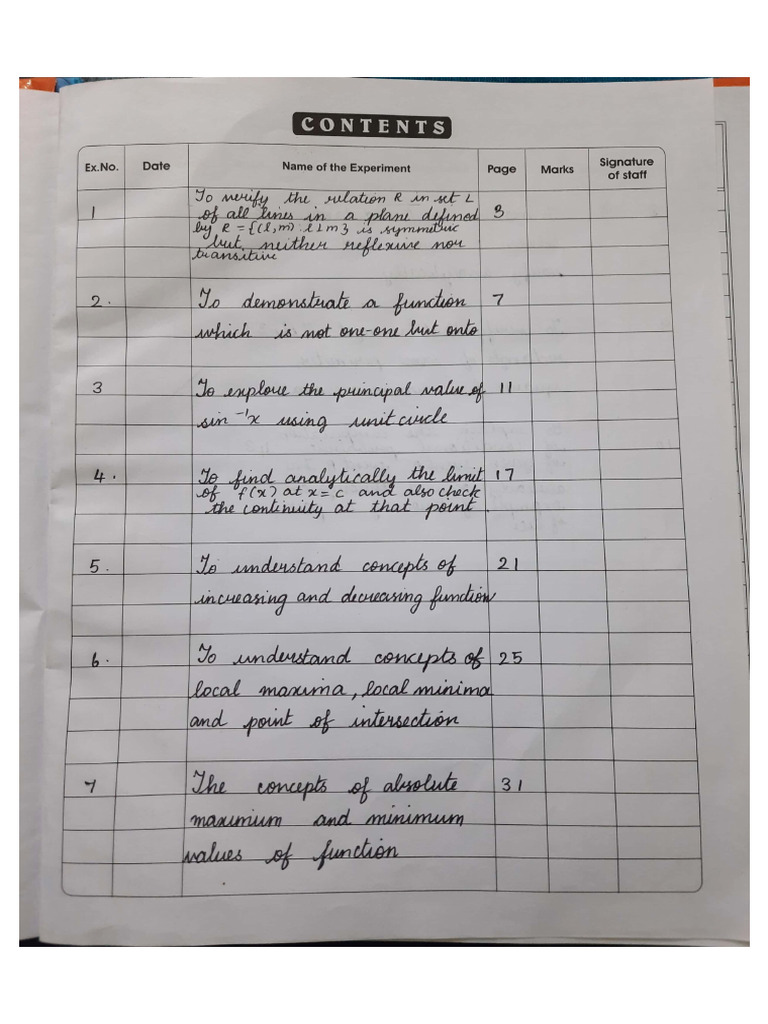 CONTENTS
Ex.No. Date Name of the Experiment Page Marks Signature of staff
1 To verify the relation R in set L 3
of all lines in a plane defined
by R = {(l, m) : l ⊥ m} is symmetric
but neither reflexive nor
transitive
2. To demonstrate a function 7
which is not one-one but onto
3 To explore the principal value of 11
sin⁻¹x using unit circle
4. To find analytically the limit 17
of f(x) at x=c and also check
the continuity at that point.
5. To understand concepts of 21
increasing and decreasing function
6. To understand concepts of 25
local maxima, local minima
and point of intersection
7 The concepts of absolute 31
maximium and minimum
values of function